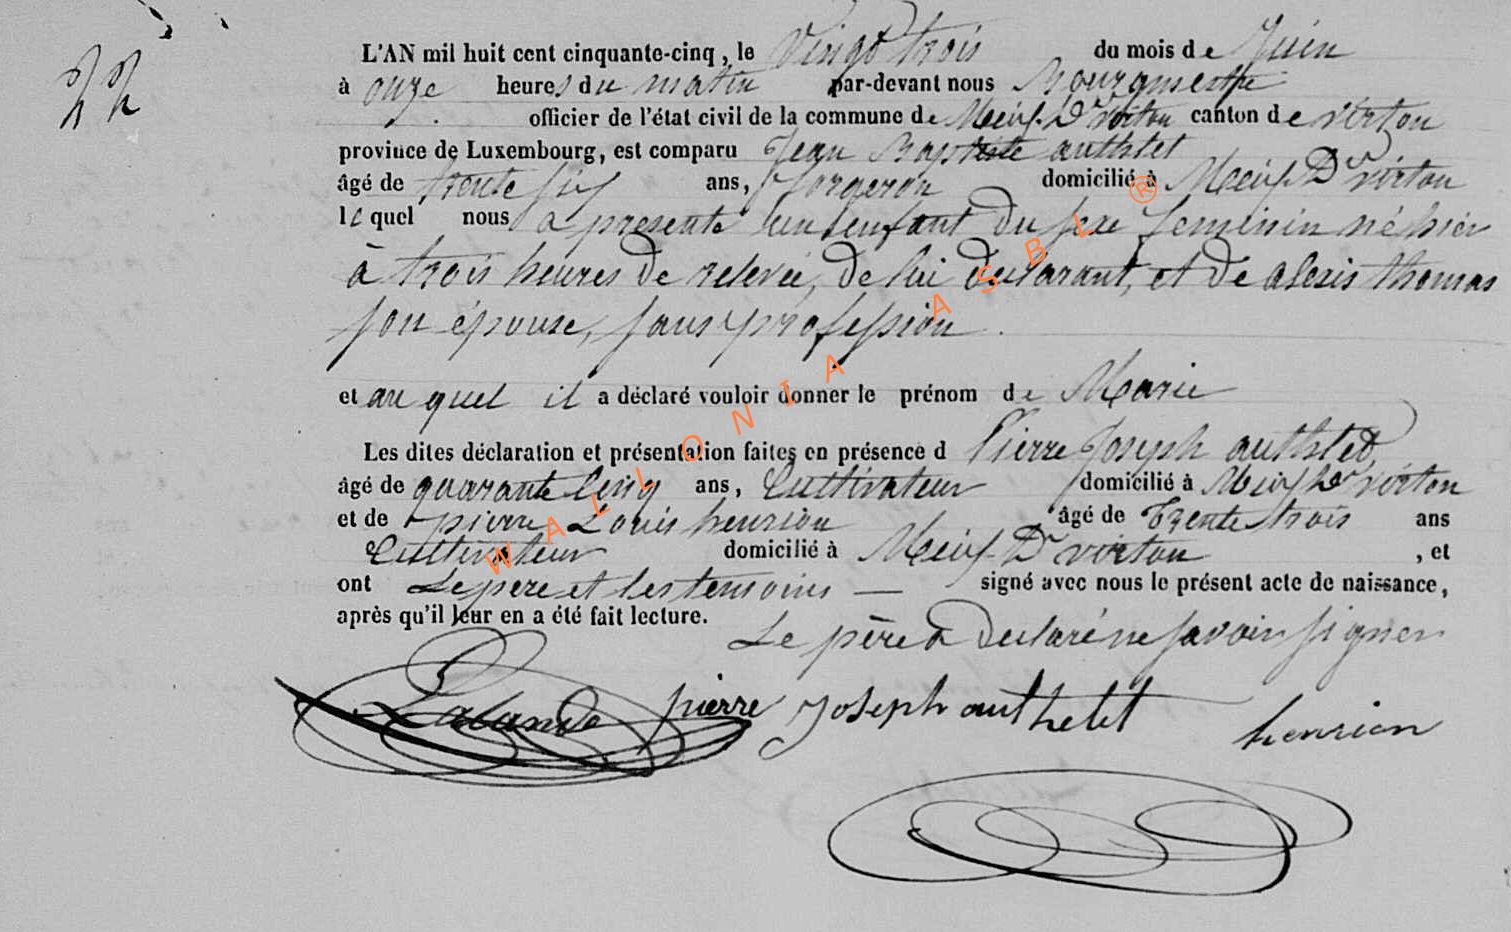 22
L'AN mil huit cent cinquante-cinq, le Vingt trois du mois de Juin
à onze heures du matin par-devant nous Bourgmestre
officier de l'état civil de la commune de Meix-Dt virton canton de virton
province de Luxembourg, est comparu Jean Baptiste authlet
âgé de trente six ans, forgeron domicilié à Meix Dt virton
le quel nous a présenté un enfant du sexe feminin né hier
à trois heures de relevée, de lui déclarant, et de alexis thomas
son épouse, sans profession.
et au quel il a déclaré vouloir donner le prénom de Marie
Les dites déclaration et présentation faites en présence d Pierre Joseph authlet
âgé de quarante cinq ans, Cultivateur domicilié à Meix Dt virton
et de pierre Louis henrion âgé de trente trois ans
Cultivateur domicilié à Meix-Dt virton, et
ont Le père et les temoins — signé avec nous le présent acte de naissance,
après qu'il leur en a été fait lecture.
Le père a declaré ne savoir signer
Lalande pierre Joseph authelet henrion
WALLONIA ASBL ®